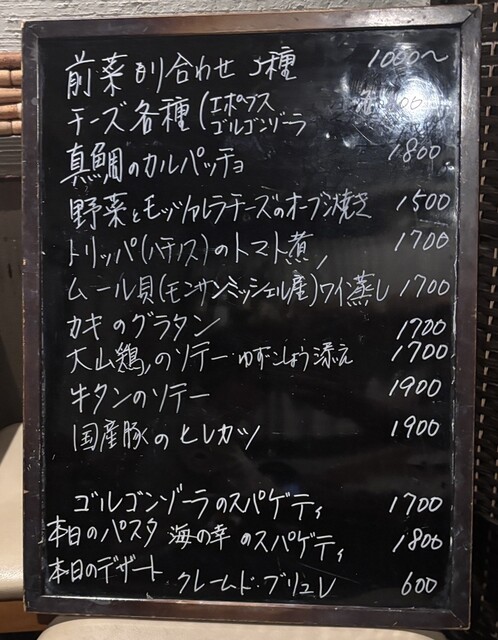 前菜もり合わせ 5種 1000〜
チーズ各種(エポワス
ゴルゴンゾーラ
真鯛のカルパッチョ 1800
野菜とモッツァレラチーズのオーブン焼き 1500
トリッパ(ハチノス)のトマト煮 1700
ムール貝(モンサンミッシェル産)ワイン蒸し 1700
カキのグラタン 1700
大山鶏のソテー・ゆずこしょう添え 1700
牛タンのソテー 1900
国産豚のヒレカツ 1900
ゴルゴンゾーラのスパゲティ 1700
本日のパスタ 海の幸のスパゲティ 1800
本日のデザート クレームド・ブリュレ 600